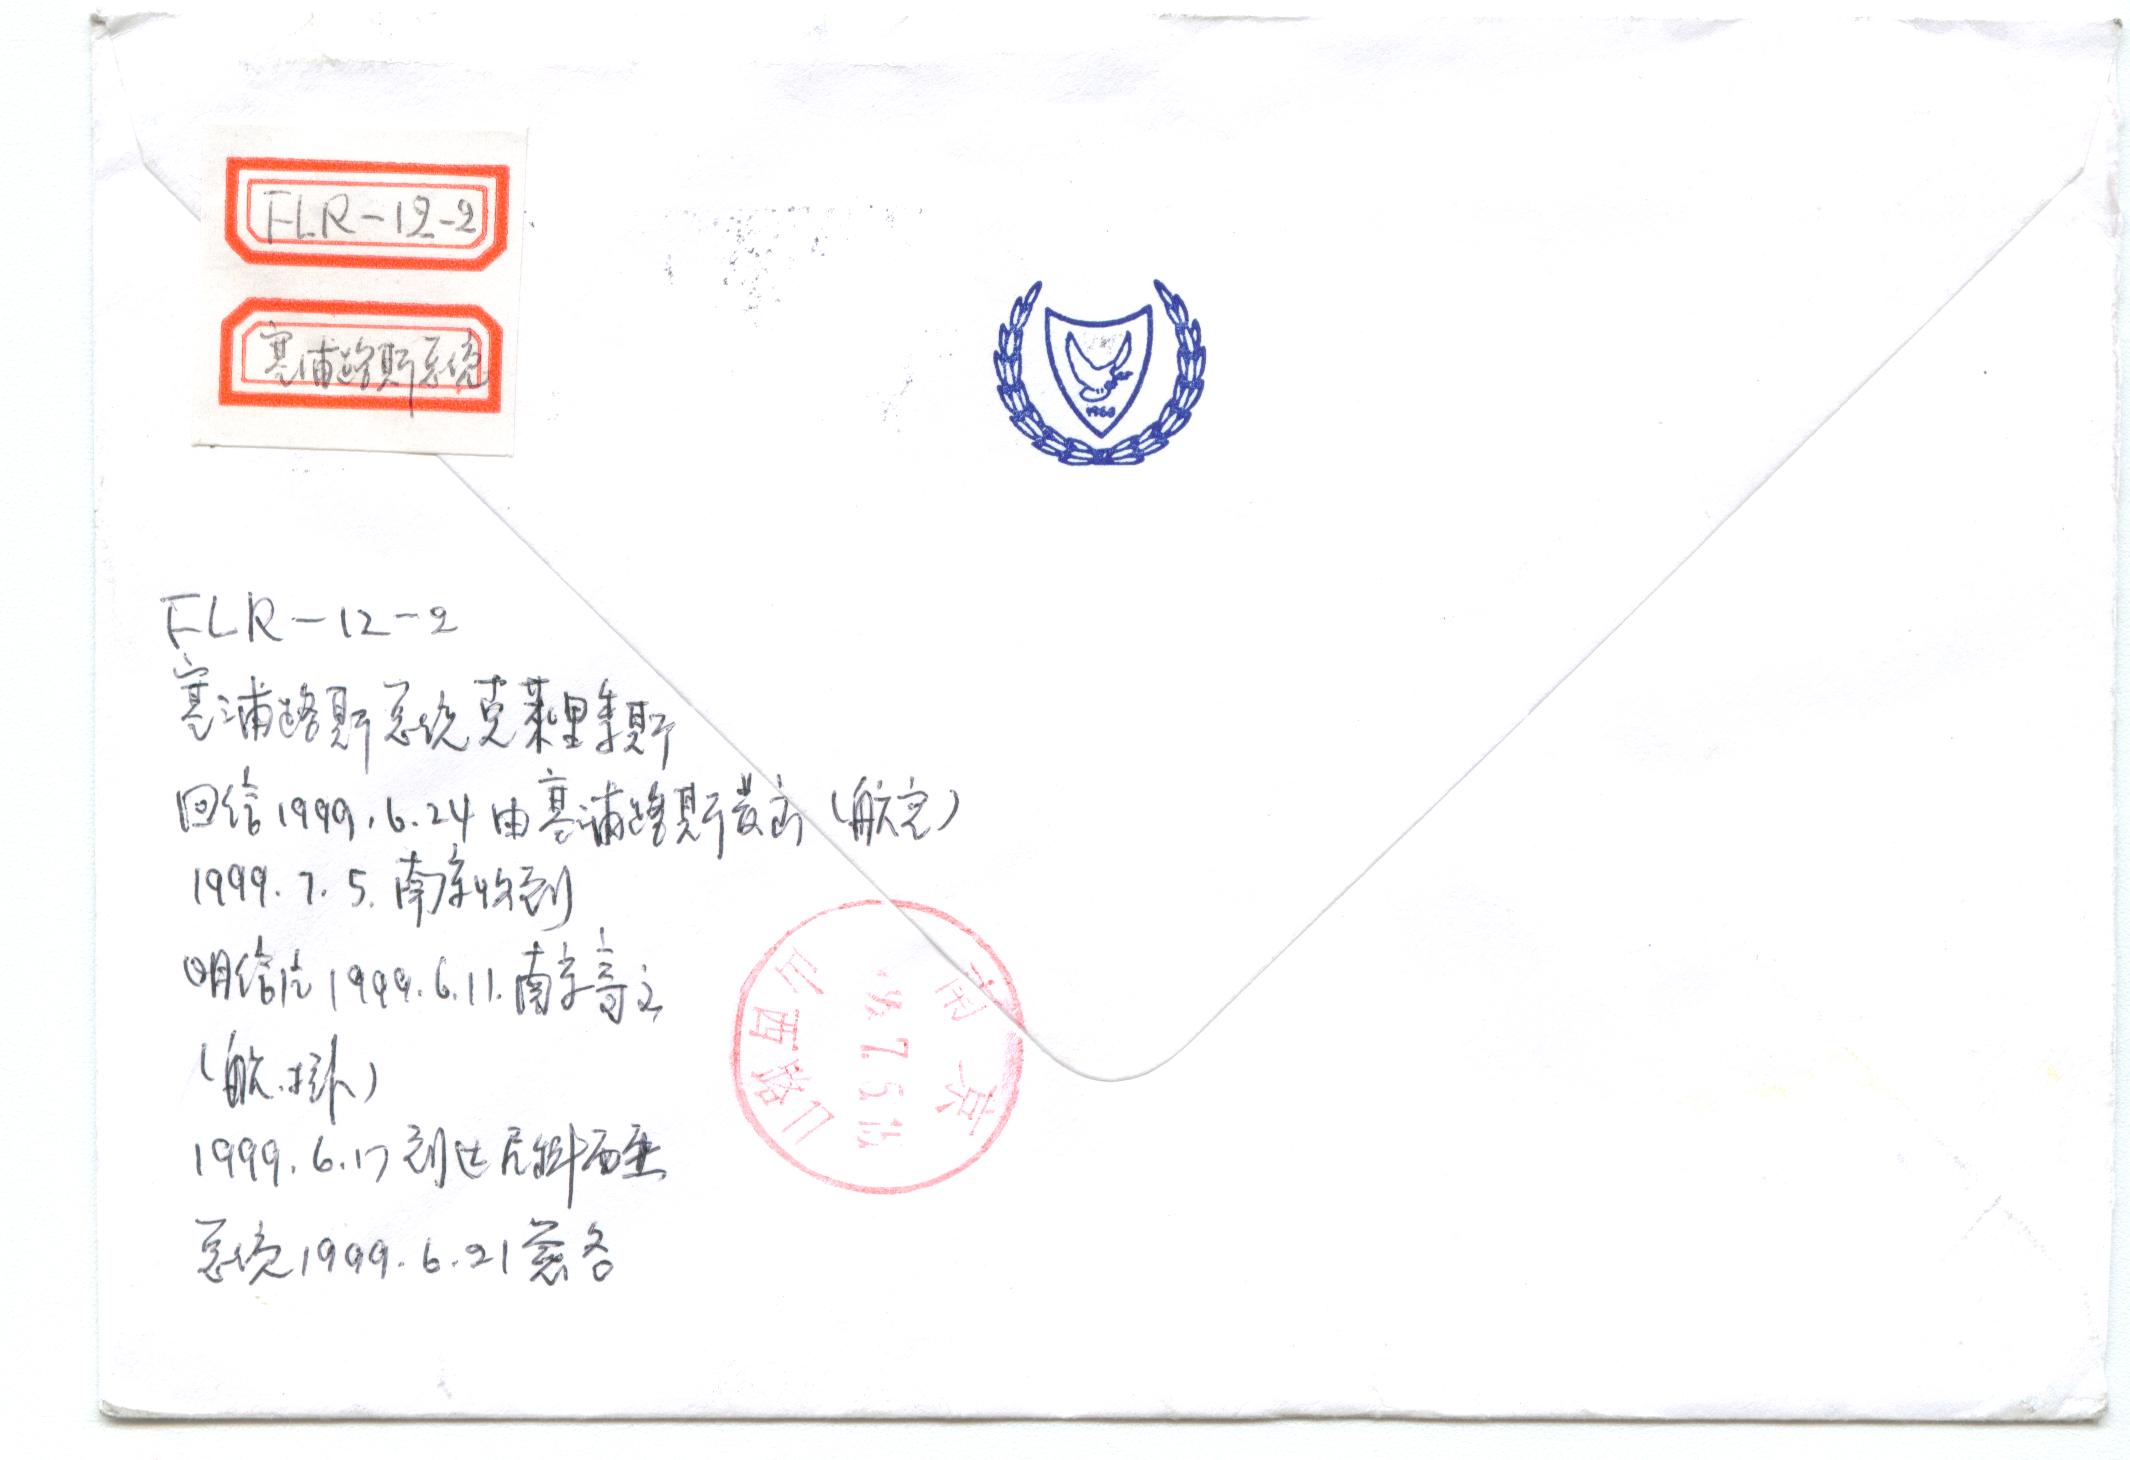 FLR-12-2
塞浦路斯总统
1960
FLR-12-2
塞浦路斯总统克莱里季斯
回信1999.6.24由塞浦路斯发出(航空)
1999.7.5.南京收到
明信片1999.6.11.南京寄出
(航.挂)
1999.6.17到达尼科西亚
总统1999.6.21签名
南京
7.5.
山西路